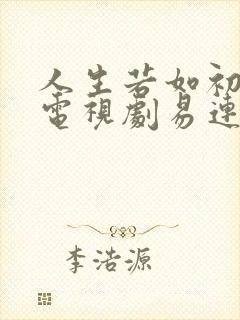 人生若如初
電視劇易連
李浩源